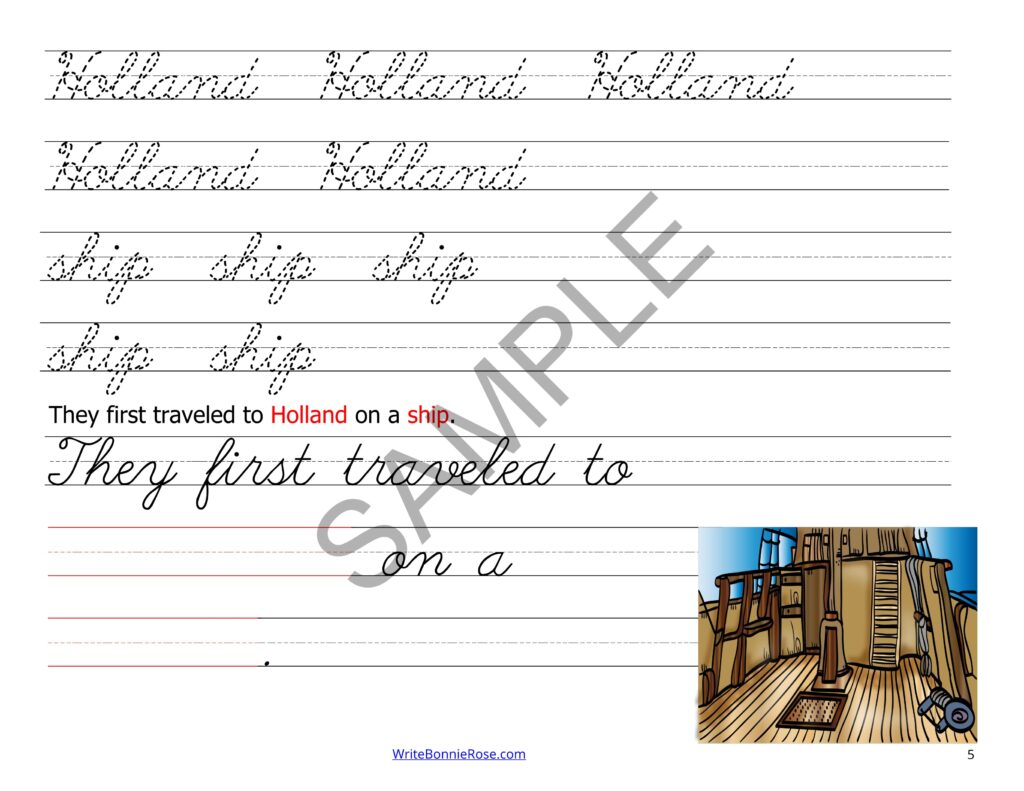 Holland Holland Holland
Holland Holland
ship ship ship
ship ship
They first traveled to Holland on a ship.
They first traveled to
on a
.
SAMPLE
WriteBonnieRose.com
5